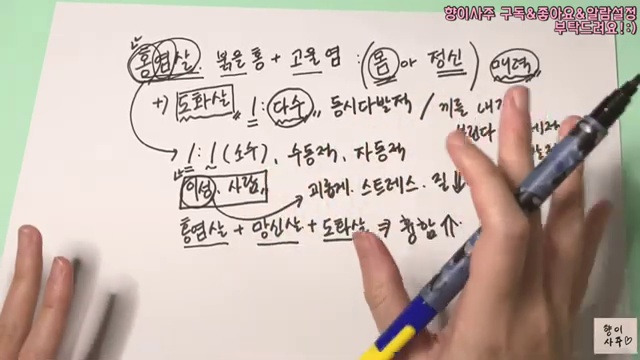 향이사주 구독&좋아요&알람설정
부탁드려요!:)
홍염살. 붉을 홍 + 고울 염 : (몸 아 정신) 매력
+) 도화살 1 : 다수, 동시다발적 / 끼를 내
1 : 1 (소수), 수동적, 자동적
이성, 사람, 괴롭게. 스트레스. 질↓
홍염살 + 망신살 + 도화살 ⇒ 흉함↑
향이
사주♡